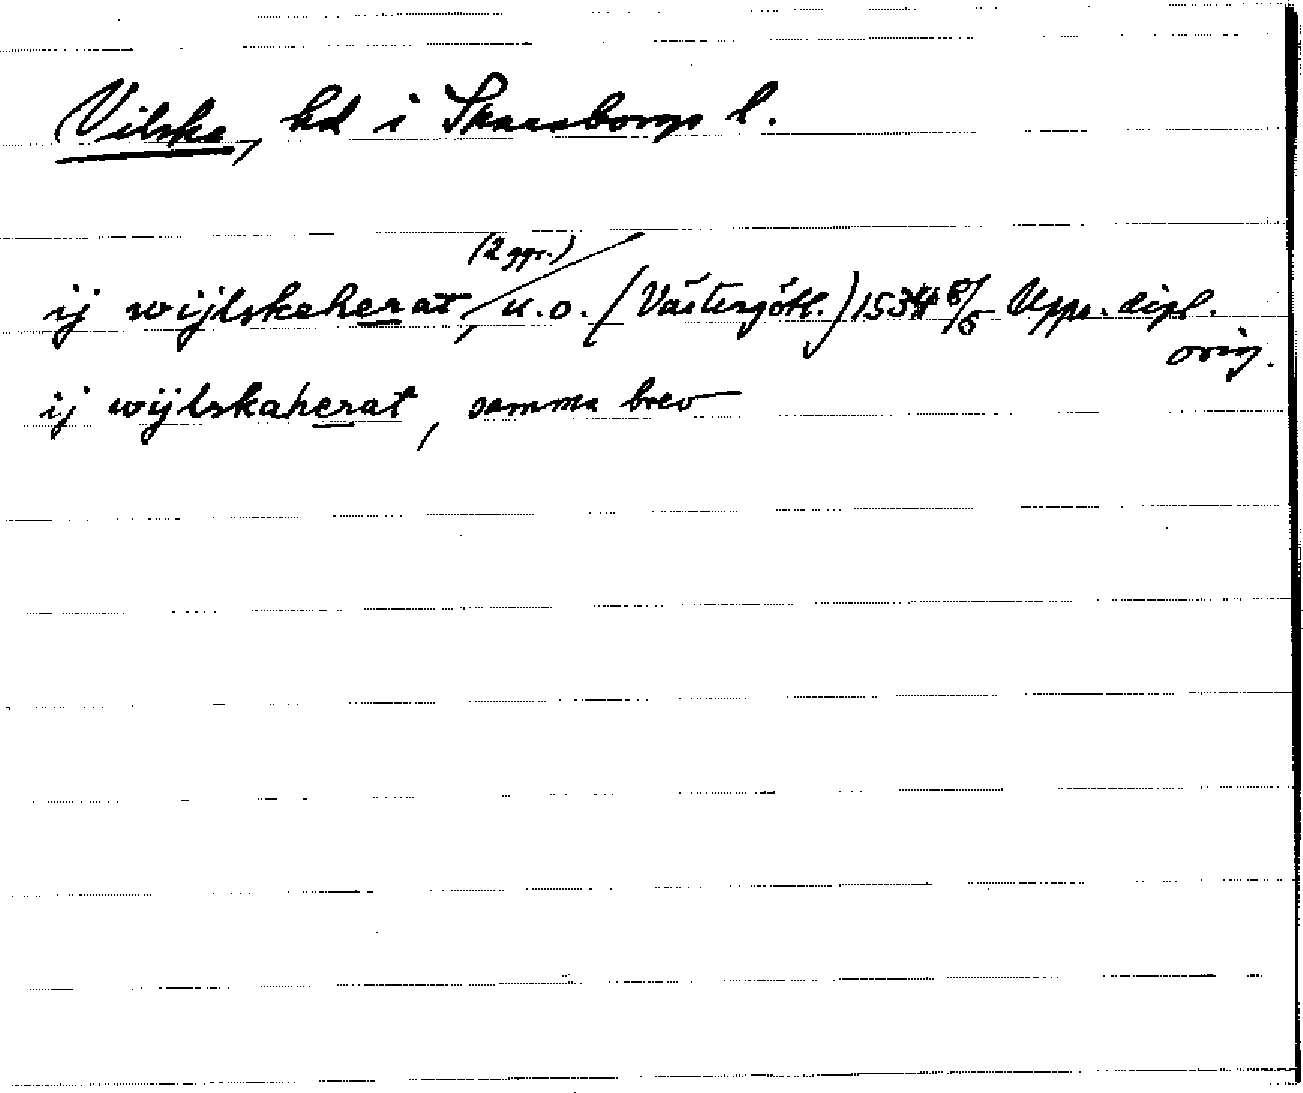 Vilske, hd i Skaraborgs l.
(2 ggr.)
ij wijlskeherat, u.o. (Västergötl.) 1534 8/5 Upps. dipl.
orig.
ij wijlskaherat, samma brev